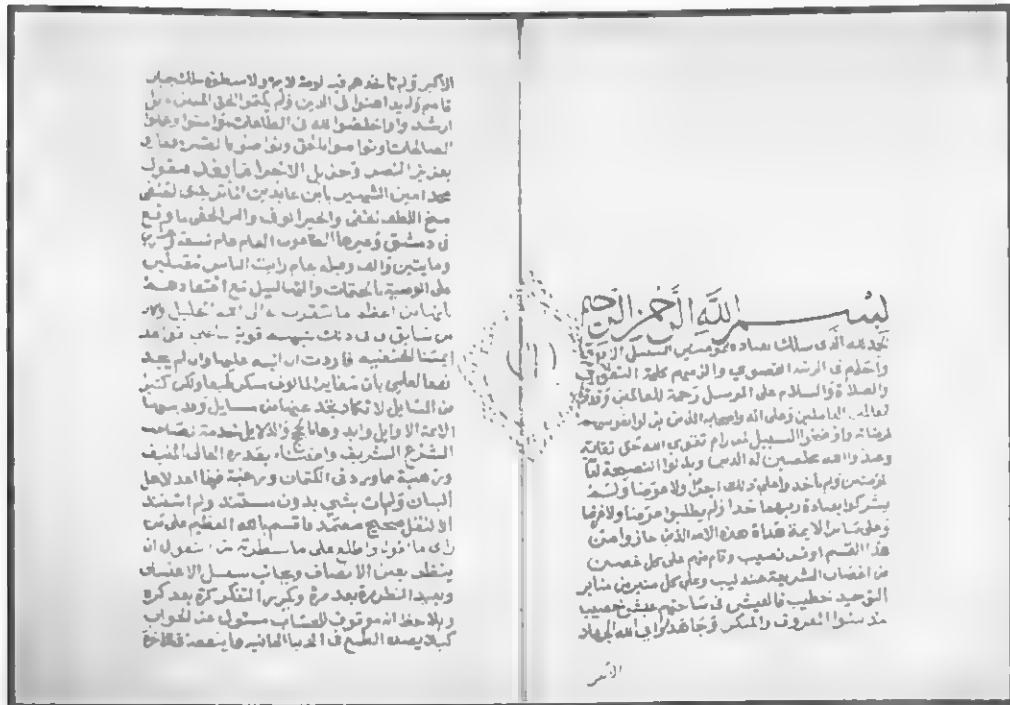 بسم الله الرحمن الرحيم
نحمد الله الذي سلك بعباده المؤمنين السبيل
واحلهم في الرشد القصوى والزمهم كلمة التقوى
والصلاة والسلام على المرسل رحمة للعالمين
العاملين وعلى اله واصحابه الذين بذلوا نفوسهم
لمرضاته واوضحوا السبيل لمن رام تقوى الله حق تقاته
وعبدوا الله مخلصين له الدين وبذلوا النصيحة
للمؤمنين ولم ياخذوا على ذلك اجرا ولا عوضا ولم
يشركوا بعبادة ربهم احدا ولم يطلبوا عرضا ولا
وعلى سائر الايمة هداة هذه الامة الذين حازوا من
هذا القسم اوفى نصيب وقام منهم على كل غصن
من اغصان الشريعة عندليب وعلى كل منبر من منابر
التوحيد خطيب فالعيش في ساحتهم عيش خصيب
بالمعروف والمنكر وجاهدوا في الله الجهاد
الاكبر
(١)
الاكبر ولم تأخذهم فيه لومة لائم ولا سطوة ملك جبار
ولم يداهنوا في الدين ولم يكتموا الحق المبين بل
ارشدوا واخلصوا لله في الطاعات وامنوا وعملوا
الصالحات وتواصوا بالحق وتواصوا بالصبر
بعزيز النصر وجزيل الاجر اما بعد فيقول
محمد امين الشهير بابن عابدين
منح اللطف الخفي والخير الوفي والبر الحفي ما وقع
في دمشق وغيرها الطاعون العام عام تسعة
ومايتين والف وقبله بعام رايت الناس مقبلين
على الوصية بالختمات والتهاليل مع اعتقادهم
بأنها من اعظم ما يتقرب به الى الله الجليل وكان
من سابق في ذلك شبهة قوية
ايمتنا الحنفية فاردت ان انبه عليها وان لم يجد
نفعا لعلمي بأن تغاير المالوف منكر طبعا ولكن كثير
من المسايل لا تكاد تجد عنها من سايل وقد بينها
الائمة الاوايل وايدوها بالحجج والدلايل خدمة لصاحب
الشرع الشريف واعتناء بقدره العالى المنيف
ورهبة مما ورد في الكتمان ورغبة فيما اعد لاهل
البيان ولم ات بشي بدون مستند ولم استند
الا لنقل صحيح معتمد فاقسم بالله العظيم على من
راى ما قوله واطلع على ما سطرته ان
ينظر بعين الانصاف ويجانب سبيل الاعتساف
ويعيد النظر مرة بعد مرة ويكرر التفكر كرة بعد كرة
ويلاحظ انه موقوف للحساب مسئول عند الجواب
كيلا يصده الطمع في الدنيا الفانية عما ينفعه في الاخرة